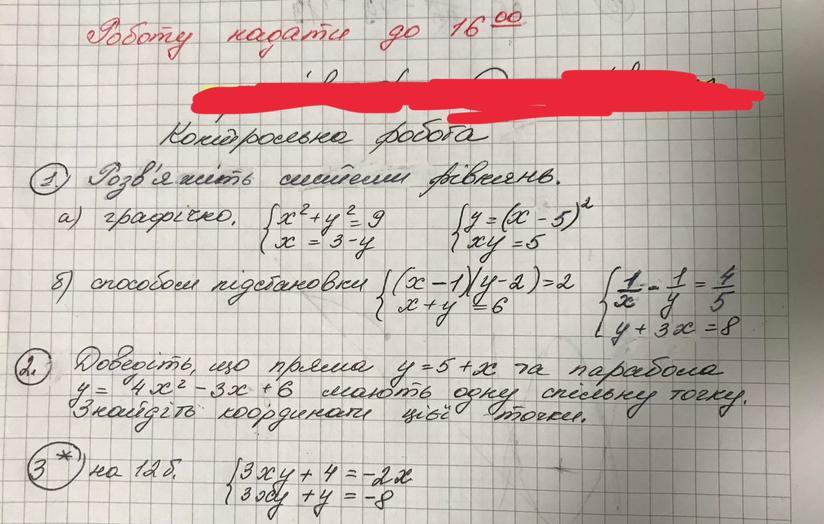 Роботу надати до 16⁰⁰
Контрольна робота
1. Розв'яжіть системи рівнянь.
а) графічно. { x² + y² = 9 { y = (x - 5)²
x = 3 - y xy = 5
б) способом підстановки { (x - 1)(y - 2) = 2 { 1/x - 1/y = 4/5
x + y = 6 y + 3x = 8
2. Доведіть, що пряма y = 5 + x та парабола
y = 4x² - 3x + 6 мають одну спільну точку.
Знайдіть координати цієї точки.
3* на 12 б. { 3xy + 4 = -2x
3xy + y = -8